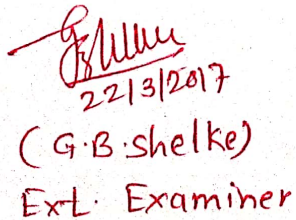 22/3/2017
(G.B.Shelke)
Ext. Examiner